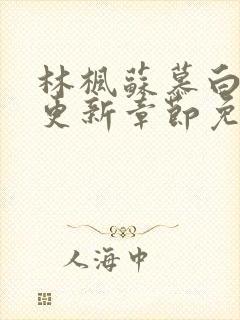 林楓蘇慕白
更新章節免
人海中